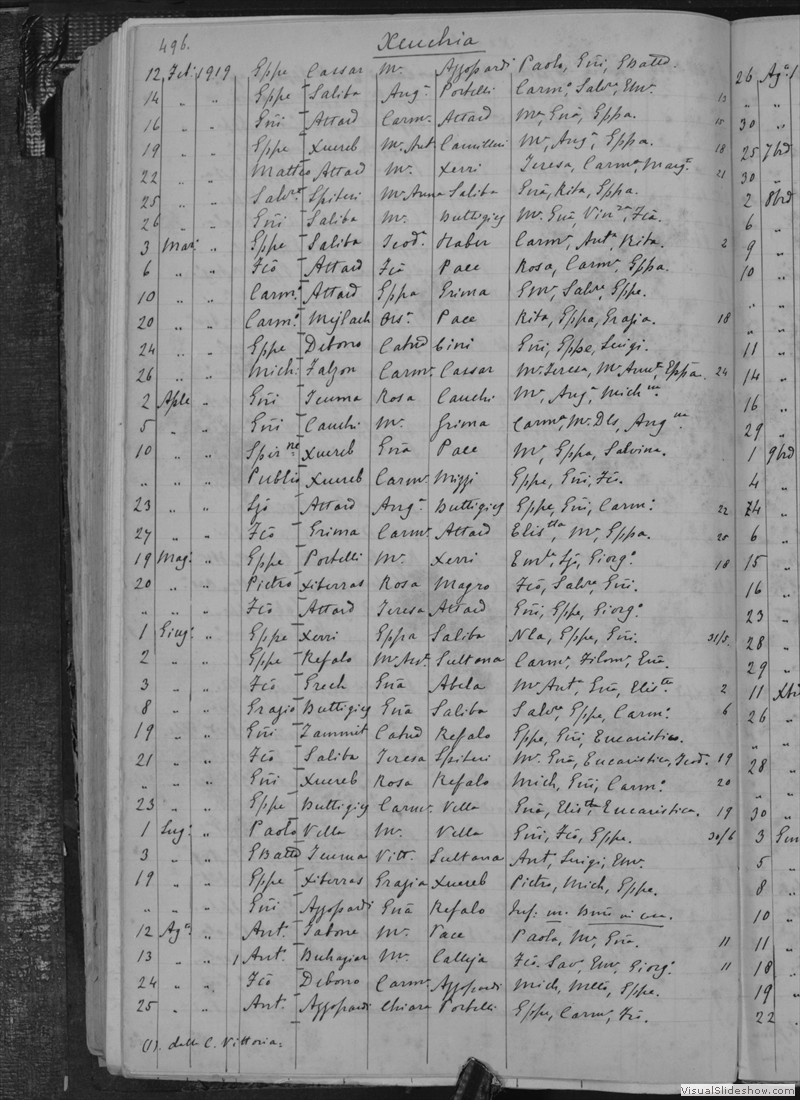 496. Xeuchia
12 Feb: 1919 Eppe Cassar Mª Azzopardi Paolo, Gñi, GBattª 26 Agº 1
14 „ „ Eppe Saliba Angª Portelli Carmº, Salvº, Emº. 13 „ „
16 „ „ Gñi Attard Carmª Attard Mª, Gñā, Eppa. 15 30 „
19 „ „ Eppe Xuereb Mª Antª Camilleri Mª, Angª, Eppa. 18 25 7brd
22 „ „ Matteo Attard Mª Xerri Teresa, Carmª, Margª. 21 30 „
25 „ „ Salvrº Spiteri Mª Anna Saliba Gñā, Rita, Eppa. 2 8brd
26 „ „ Gñi Saliba Mª Buttigieg Mª, Gñā, Vinª, Fcā. 6 „
3 Mar: „ Eppe Saliba Teodª Haber Carmª, Antª, Rita. 2 9 „
6 „ „ Fcō Attard Fcā Pace Rosa, Carmª, Eppa. 10 „
10 „ „ Carmº Attard Eppa Grima Emº, Salvº, Eppe. „ „
20 „ „ Carmº Mejlach Orsª Pace Rita, Eppa, Grazia. 18 „ „
24 „ „ Eppe Debono Catnd Cini Gñi, Eppe, Luigi. 11 „
26 „ „ Mich: Falzon Carmª Cassar Mª Teresa, Mª Annª, Eppa. 24 14 „
2 Aple „ Gñi Teuma Rosa Cauchi Mª, Angª, Michna. 16 „
5 „ „ Gñi Cauchi Mª Grima Carmª, Mª Dls, Angna. 29 „
10 „ „ Spirne Xuereb Gñā Pace Mª, Eppa, Salvina. 1 9brd
„ „ „ Publio Xuereb Carmª Mizzi Eppe, Gñi, Fcō. 4 „
23 „ „ Ljō Attard Angª Buttigieg Eppe, Gñi, Carmº 22 24 „
27 „ „ Fcō Grima Carmª Attard Elistta, Mª, Eppa. 25 6 „
19 Mag: „ Eppe Portelli Mª Xerri Emlª, Ljō, Giorgº 18 15 „
20 „ „ Pietro Xiberras Rosa Magro Fcō, Salvº, Gñi. 16 „
„ „ „ Fcō Attard Teresa Attard Gñi, Eppe, Giorgº 23 „
1 Giugº „ Eppe Xerri Eppa Saliba Nla, Eppe, Gñi. 31/5. 28 „
2 „ „ Eppe Refalo Mª Antª Sultana Carmª, Filomª, Gñā. 29 „
3 „ „ Fcō Grech Gñā Abela Mª Antª, Gñā, Elistta 2 11 Xbi
8 „ „ Grazio Buttigieg Gñā Saliba Salvº, Eppe, Carmº. 6 26 „
19 „ „ Gñi Zammit Catnd Refalo Eppe, Gñi, Eucaristico. „ „
21 „ „ Fcō Saliba Teresa Spiteri Mª, Gñā, Eucaristica, Teod. 19 28 „
„ „ „ Gñi Xuereb Rosa Refalo Mich, Gñi, Carmº 20 „ „
23 „ „ Eppe Buttigieg Carmª Vella Gñā, Elistta, Eucaristica. 19 30 „
1 Lug: „ Paolo Vella Mª Vella Gñi, Fcō, Eppe. 30/6 3 Gen
3 „ „ GBattª Teuma Vitt. Sultana Ant, Luigi, Emº. 5 „
19 „ „ Eppe Xiberras Grazia Xuereb Pietro, Mich, Eppe. 8 „
„ „ „ Gñi Azzopardi Gñā Refalo Inf: 10 „
12 Agº „ Ant. Tabone Mª Pace Paola, Mª, Gñā. 11 11 „
13 „ „ 1 Ant. Buhagiar Mª Calleja Fcō. Sav, Emº, Giorgº 11 18 „
24 „ „ Fcō Debono Carmª Azzopardi Mich, Mllō, Eppe. 19 „
25 „ „ Ant. Azzopardi Chiara Portelli Eppe, Carmº, Fcō. 22
(1). della C. Vittoria:
VisualSlideshow.com